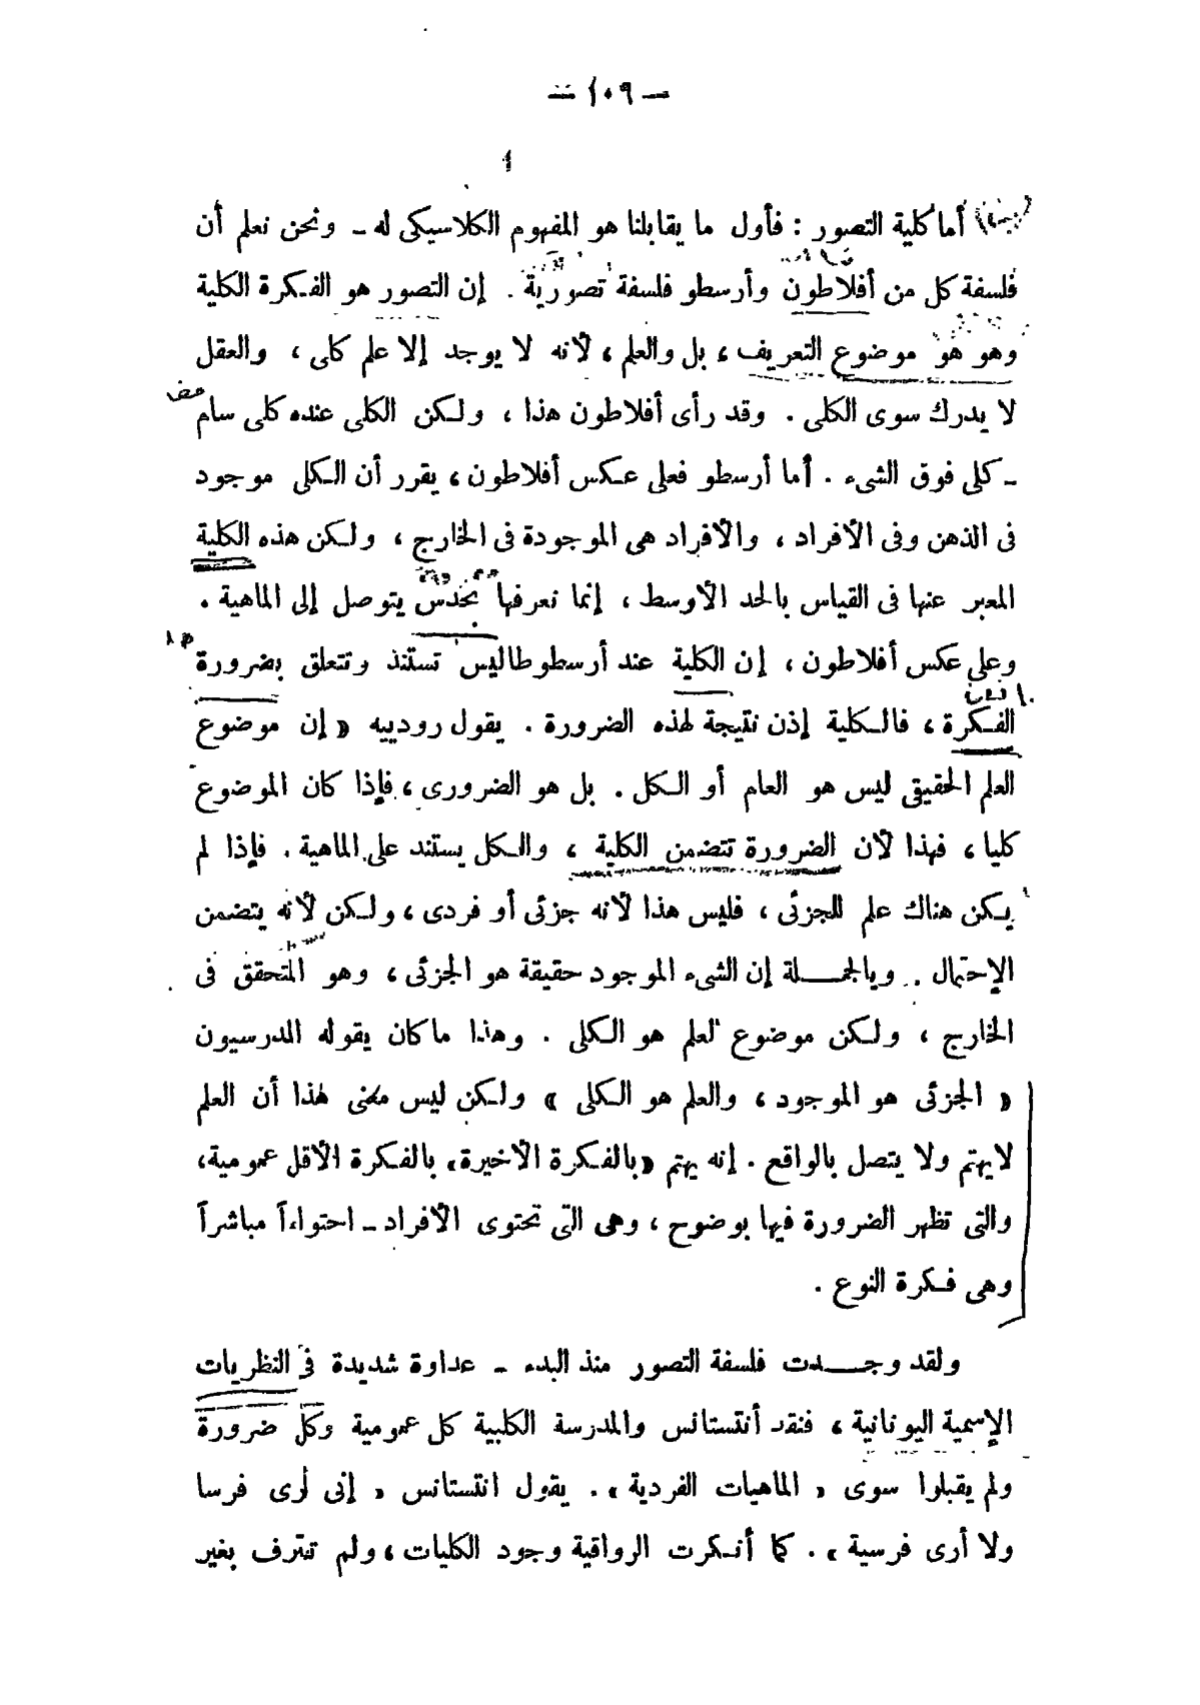 — ١٠٩ —
أما كلية التصور : فأول ما يقابلنا هو المفهوم الكلاسيكى له ـ ونحن نعلم أن
فلسفة كل من أفلاطون وأرسطو فلسفة تصورية . إن التصور هو الفكرة الكلية
وهو هو موضوع التعريف ، بل والعلم ، لأنه لا يوجد إلا علم كلى ، والعقل
لا يدرك سوى الكلى . وقد رأى أفلاطون هذا ، ولكن الكلى عنده كلى سام
ـ كلى فوق الشىء . أما أرسطو فعلى عكس أفلاطون ، يقرر أن الكلى موجود
فى الذهن وفى الأفراد ، والأفراد هى الموجودة فى الخارج ، ولكن هذه الكلية
المعبر عنها فى القياس بالحد الأوسط ، إنما نعرفها بحدس يتوصل إلى الماهية .
وعلى عكس أفلاطون ، إن الكلية عند أرسطوطاليس تستند وتتعلق بضرورة
الفكرة ، فالكلية إذن نتيجة لهذه الضرورة . يقول رودييه « إن موضوع
العلم الحقيقى ليس هو العام أو الكل . بل هو الضرورى ، فإذا كان الموضوع
كليا ، فهذا لأن الضرورة تتضمن الكلية ، والكل يستند على الماهية . فإذا لم
يكن هناك علم للجزئى ، فليس هذا لأنه جزئى أو فردى ، ولكن لأنه يتضمن
الإحتمال . وبالجملة إن الشىء الموجود حقيقة هو الجزئى ، وهو المتحقق فى
الخارج ، ولكن موضوع العلم هو الكلى . وهذا ما كان يقوله المدرسيون
« الجزئى هو الموجود ، والعلم هو الكلى » ولكن ليس معنى هذا أن العلم
لا يهتم ولا يتصل بالواقع . إنه يهتم «بالفكرة الأخيرة» بالفكرة الأقل عمومية ،
والتى تظهر الضرورة فيها بوضوح ، وهى التى تحتوى الأفراد ـ احتواءاً مباشراً
وهى فكرة النوع .
ولقد وجدت فلسفة التصور منذ البدء ـ عداوة شديدة فى النظريات
الإسمية اليونانية ، فنقد أنتستانس والمدرسة الكلبية كل عمومية وكل ضرورة
ولم يقبلوا سوى « الماهيات الفردية » . يقول انتستانس « إنى أرى فرسا
ولا أرى فرسية » . كما أنكرت الرواقية وجود الكليات ، ولم تعترف بغير